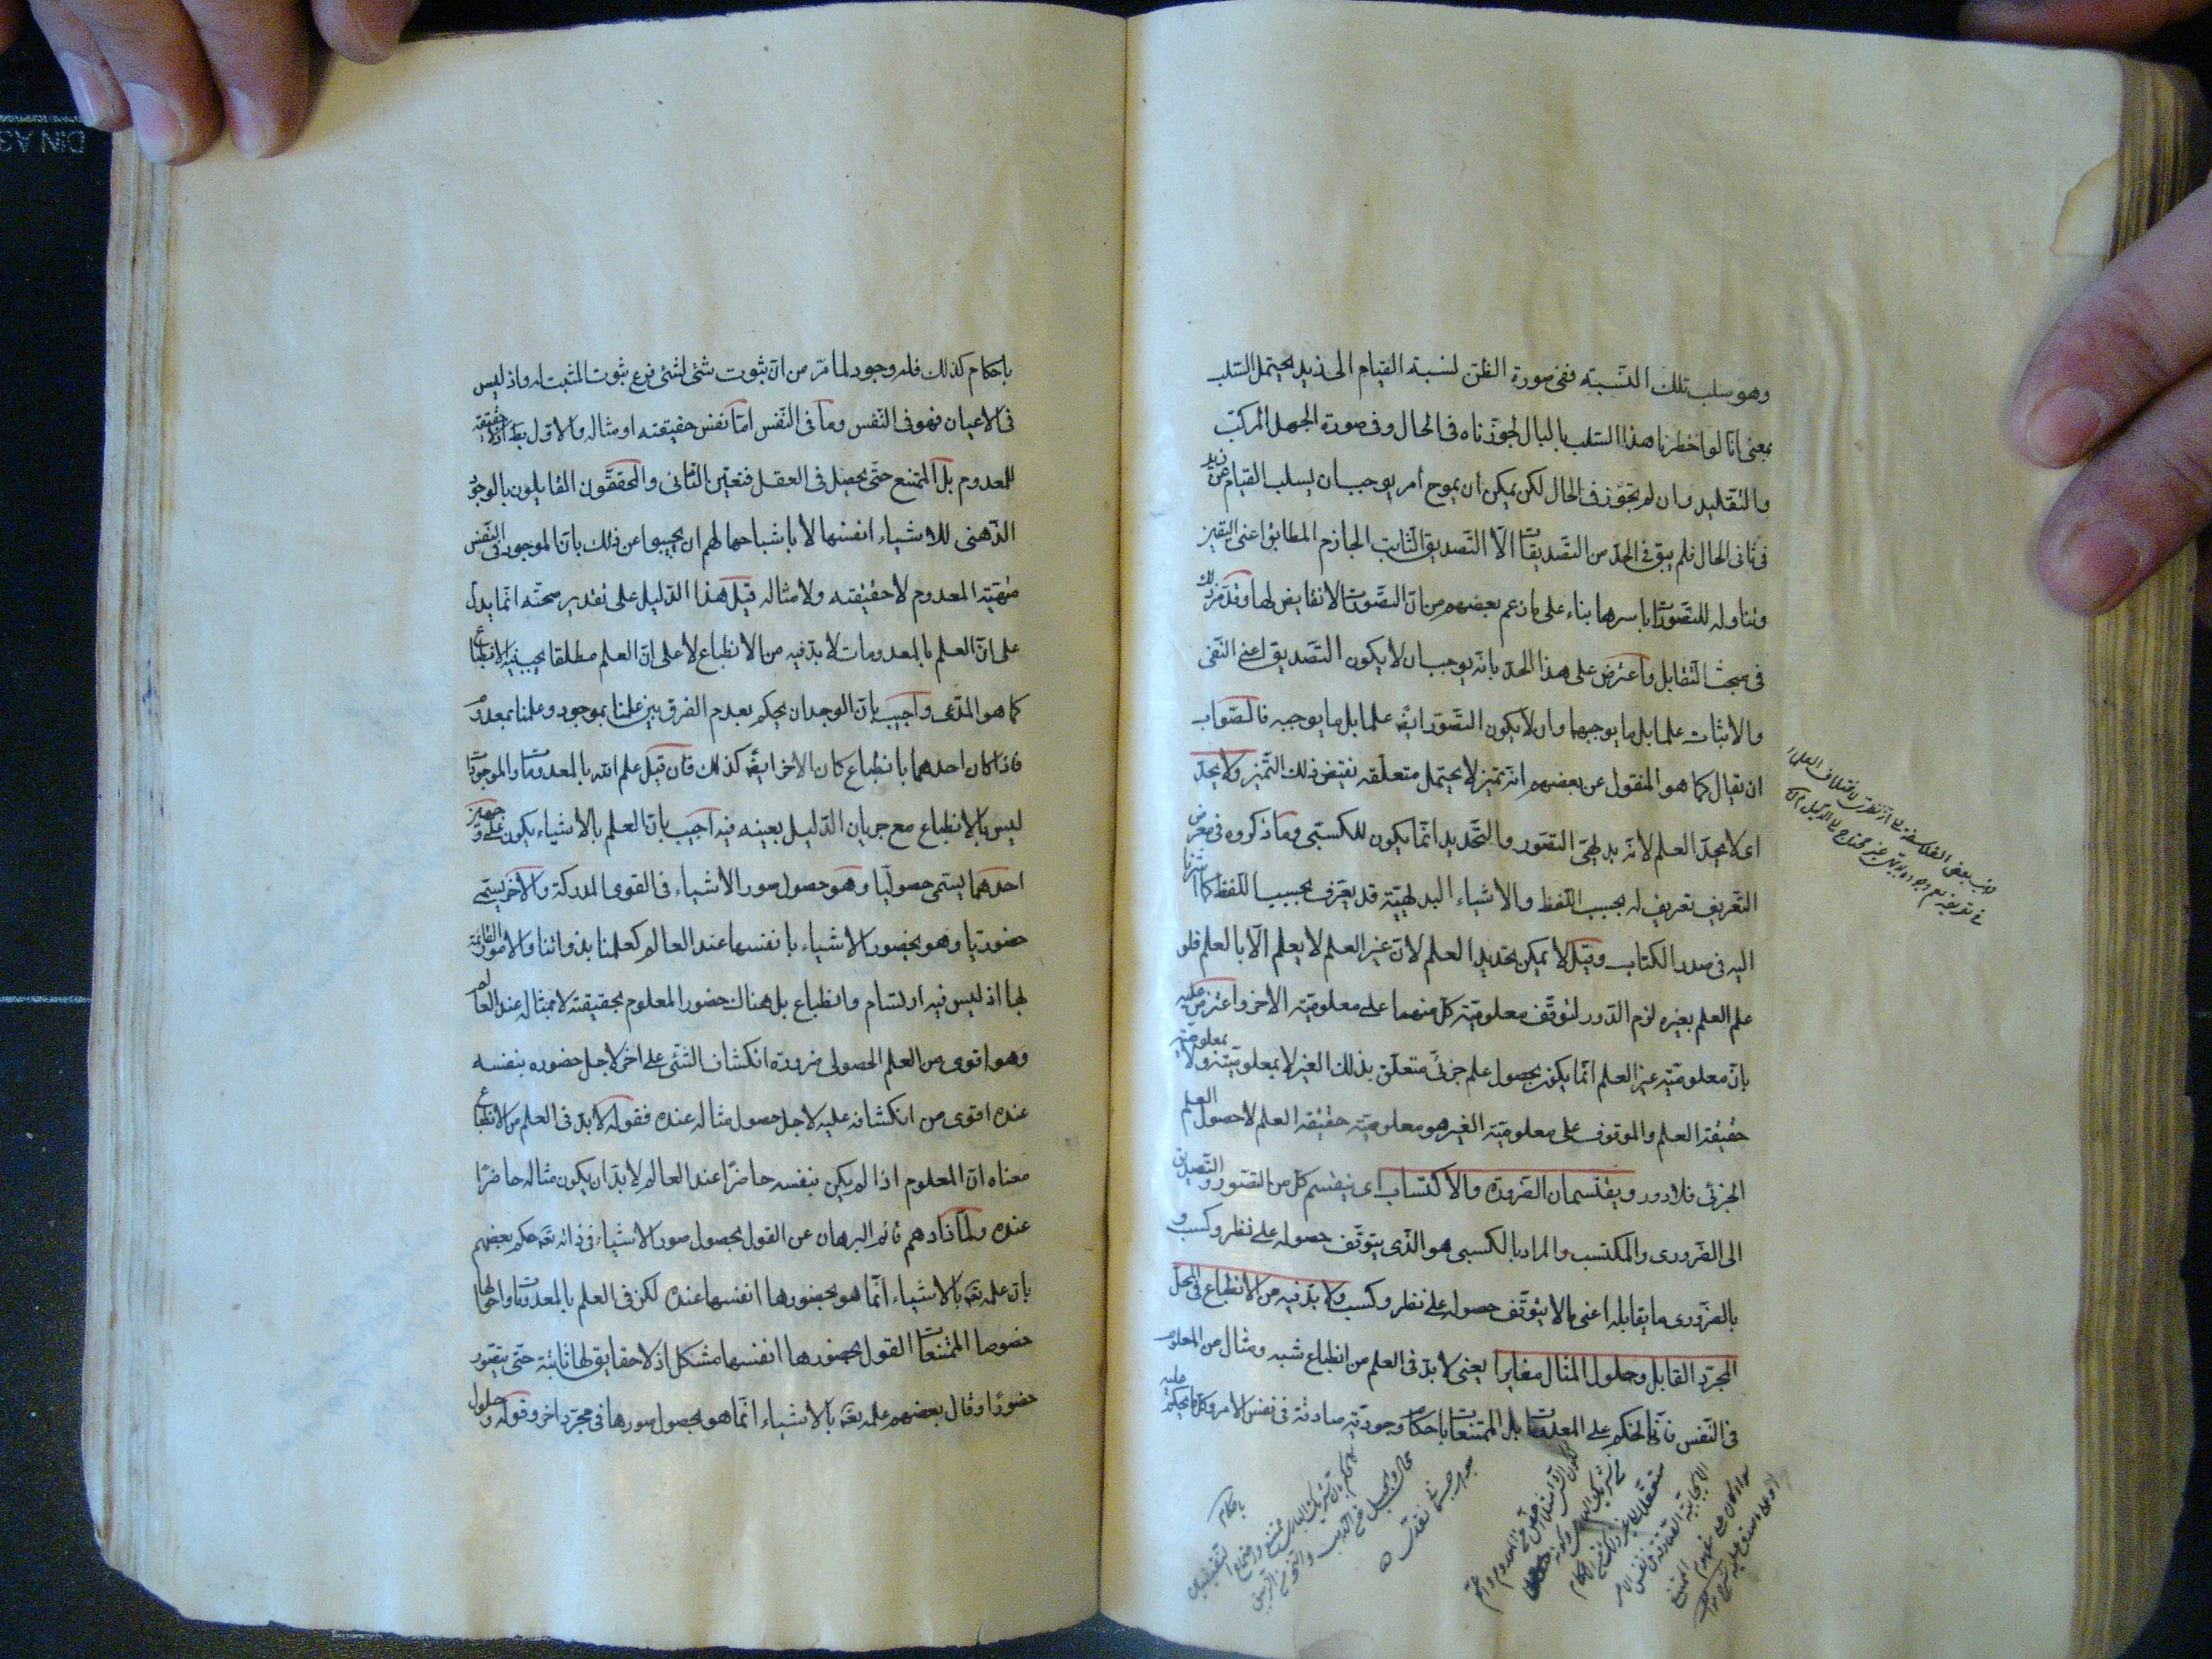 وهو سلب تلك النسبة ففى صورة الظن لنسبة القيام الى زيد يحتمل السلب
بمعنى انا لو اخطرنا هذا السلب بالبال لجوزناه فى الحال وفى صورة الجهل المركب
والتقليد وان لم نجوز فى الحال لكن يمكن ان يموح امر يوجب ان يسلب القيام عن زيد
فى ثانى الحال فلم يبق فى الحد من التصديقات الا التصديق الثابت الجازم المطابق اعنى اليقين
وتناوله للتصورات باسرها بناء على ما زعم بعضهم من ان التصورات لا نقايض لها وقد مر ذلك
فى مبحث التقابل واعترض على هذا الحد بانه يوجب ان لا يكون التصديق اعنى النفى
والاثبات علما بل ما يوجبهما وان لا يكون التصور ايضا علما بل ما يوجبه فالصواب
ان يقال كما هو المنقول عن بعضهم انه تميز لا يحتمل متعلقه نقيض ذلك التميز ولا يحد
اى لا يحد العلم لانه بديهى التصور والتحديد انما يكون للكسبى وما ذكروه فى معرض
التعريف تعريف له بحسب اللفظ والاشياء البديهية قد يعرف بحسب اللفظ كما اشرنا
اليه فى صدر الكتاب وقيل لا يمكن تحديد العلم لان غير العلم لا يعلم الا بالعلم فلو
علم العلم بغيره لزم الدور لتوقف معلومية كل منهما على معلومية الاخر واعترض عليه
بان معلومية غير العلم انما يكون بحصول علم جزئى متعلق بذلك الغير لا بمعلوميته ولا بمعلومية
حقيقة العلم والموقوف على معلومية الغير هو معلومية حقيقة العلم لا حصول العلم
الجزئى فلا دور ويقتسمان الضرورة والاكتساب اى ينقسم كل من التصور والتصديق
الى الضرورى والمكتسب والمراد بالكسبى هو الذى يتوقف حصوله على نظر وكسب و
بالضرورى ما يقابله اعنى ما لا يتوقف حصوله على نظر وكسب ولا بد فيه من الانطباع فى المحل
المجرد القابل وحلول المثال مغاير يعنى لا بد فى العلم من انطباع شبه ومثال من المعلوم
فى النفس فانا نحكم على المعدومات بل الممتنعات باحكام وجودية صادقة فى نفس الامر وكل ما يحكم عليه
باحكام
باحكام كذلك فله وجود لما مر من ان ثبوت شئ لشئ فرع ثبوت المثبت له واذ ليس
فى الاعيان فهو فى النفس وما فى النفس اما نفس حقيقته او مثاله والاول بط اذ لا حقيقة
للمعدوم بل الممتنع حتى يحصل فى العقل فتعين الثانى والمحققون القايلون بالوجود
الذهنى للاشياء انفسها لا باشباحها لهم ان يجيبوا عن ذلك بان الموجود فى النفس
مهية المعدوم لا حقيقته ولا مثاله قيل هذا الدليل على تقدير صحته انما يدل
على ان العلم بالمعدومات لا بد فيه من الانطباع لا على ان العلم مطلقا يجب فيه الانطباع
كما هو المدعى واجيب بان الوجدان يحكم بعدم الفرق بين علمنا بموجود وعلمنا بمعدوم
فاذا كان احدهما بانطباع كان الاخر ايضا كذلك فان قيل علم الله بالمعدومات والموجودات
ليس بالانطباع مع جريان الدليل بعينه فيه اجيب بان العلم بالاشياء يكون على وجهين
احدهما يسمى حصوليا وهو حصول صور الاشياء فى القوى المدركة والاخر يسمى
حضوريا وهو بحضور الاشياء بانفسها عند العالم كعلمنا بذواتنا والامور القائمة
لها اذ ليس فيه ارتسام وانطباع بل هناك حضور المعلوم بحقيقته لا بمثاله عند العالم
وهو اقوى من العلم الحصولى ضرورة انكشاف الشئ على اخر لاجل حضوره بنفسه
عنده اقوى من انكشافه عليه لاجل حصول مثاله عنده فقوله لا بد فى العلم من الانطباع
معناه ان المعلوم اذا لم يكن بنفسه حاضرا عند العالم لا بد ان يكون مثاله حاضرا
عنده ولما ذادهم قائم البرهان عن القول بحصول صور الاشياء فى ذاته تعه حكم بعضهم
بان علمه تعه بالاشياء انما هو بحضورها انفسها عنده لكن فى العلم بالمعدومات واحوالها
خصوصا الممتنعات القول بحضورها انفسها مشكل اذ لا حقايق لها ثابتة حتى يتصور
حضورا وقال بعضهم علمه تعه بالاشياء انما هو بحصول صورها فى مجرد اخر وقوله وحلول
DIN A3